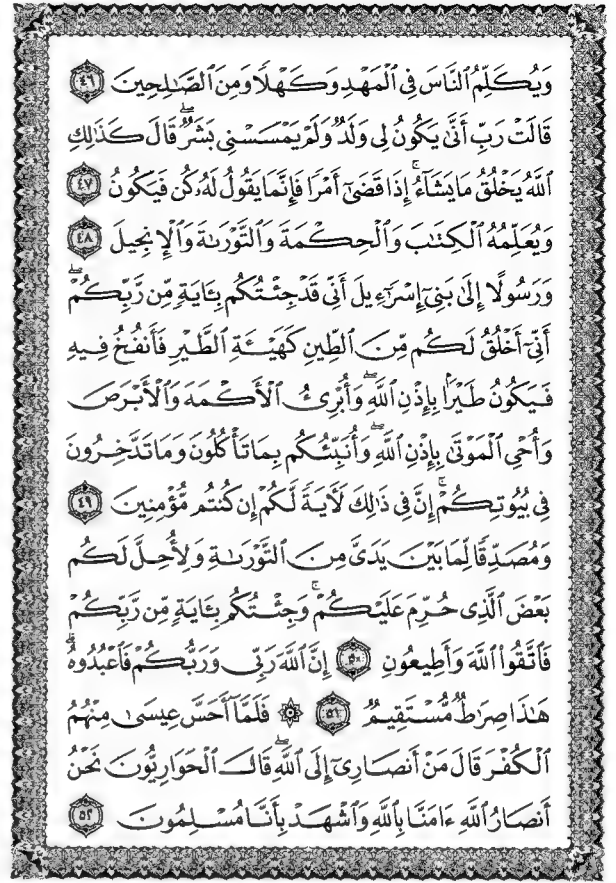 وَيُكَلِّمُ ٱلنَّاسَ فِي ٱلْمَهْدِ وَكَهْلًا وَمِنَ ٱلصَّٰلِحِينَ ٤٦
قَالَتْ رَبِّ أَنَّىٰ يَكُونُ لِي وَلَدٌ وَلَمْ يَمْسَسْنِي بَشَرٌۖ قَالَ كَذَٰلِكِ
ٱللَّهُ يَخْلُقُ مَا يَشَآءُۚ إِذَا قَضَىٰٓ أَمْرًا فَإِنَّمَا يَقُولُ لَهُۥ كُن فَيَكُونُ ٤٧
وَيُعَلِّمُهُ ٱلْكِتَٰبَ وَٱلْحِكْمَةَ وَٱلتَّوْرَىٰةَ وَٱلْإِنجِيلَ ٤٨
وَرَسُولًا إِلَىٰ بَنِيٓ إِسْرَٰٓءِيلَ أَنِّي قَدْ جِئْتُكُم بِـَٔايَةٍ مِّن رَّبِّكُمْۖ
أَنِّيٓ أَخْلُقُ لَكُم مِّنَ ٱلطِّينِ كَهَيْـَٔةِ ٱلطَّيْرِ فَأَنفُخُ فِيهِ
فَيَكُونُ طَيْرًۢا بِإِذْنِ ٱللَّهِۖ وَأُبْرِئُ ٱلْأَكْمَهَ وَٱلْأَبْرَصَ
وَأُحْيِ ٱلْمَوْتَىٰ بِإِذْنِ ٱللَّهِۖ وَأُنَبِّئُكُم بِمَا تَأْكُلُونَ وَمَا تَدَّخِرُونَ
فِي بُيُوتِكُمْۚ إِنَّ فِي ذَٰلِكَ لَأٓيَةً لَّكُمْ إِن كُنتُم مُّؤْمِنِينَ ٤٩
وَمُصَدِّقًا لِّمَا بَيْنَ يَدَيَّ مِنَ ٱلتَّوْرَىٰةِ وَلِأُحِلَّ لَكُم
بَعْضَ ٱلَّذِي حُرِّمَ عَلَيْكُمْۚ وَجِئْتُكُم بِـَٔايَةٍ مِّن رَّبِّكُمْ
فَٱتَّقُوا۟ ٱللَّهَ وَأَطِيعُونِ ٥٠ إِنَّ ٱللَّهَ رَبِّي وَرَبُّكُمْ فَٱعْبُدُوهُۗ
هَٰذَا صِرَٰطٌ مُّسْتَقِيمٌ ٥١ ۞ فَلَمَّآ أَحَسَّ عِيسَىٰ مِنْهُمُ
ٱلْكُفْرَ قَالَ مَنْ أَنصَارِيٓ إِلَى ٱللَّهِۖ قَالَ ٱلْحَوَارِيُّونَ نَحْنُ
أَنصَارُ ٱللَّهِ ءَامَنَّا بِٱللَّهِ وَٱشْهَدْ بِأَنَّا مُسْلِمُونَ ٥٢